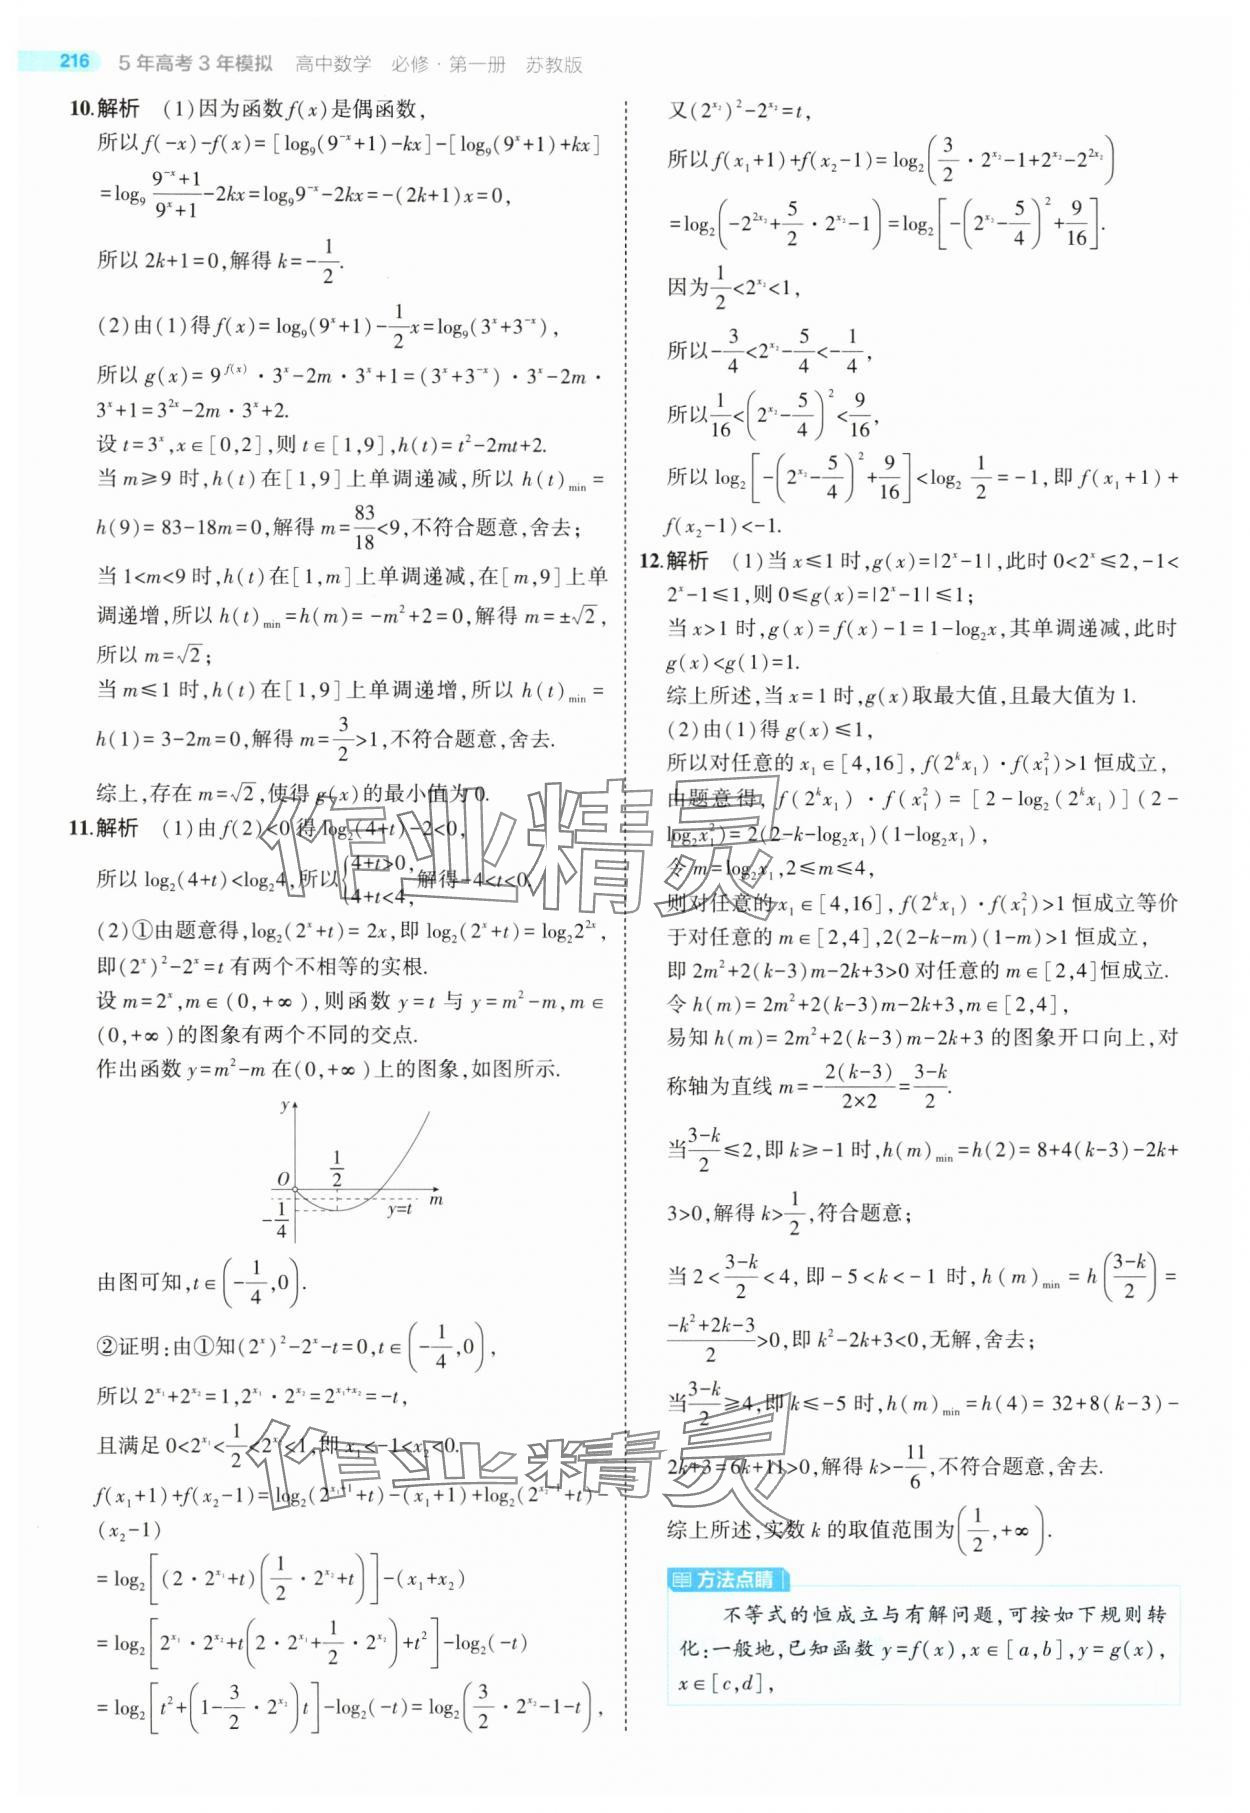 216 5年高考3年模拟 高中数学 必修·第一册 苏教版
10.解析 (1)因为函数f(x)是偶函数,
所以f(-x)-f(x)=[log₉(9⁻ˣ+1)-kx]-[log₉(9ˣ+1)+kx]
=log₉ (9⁻ˣ+1)/(9ˣ+1) -2kx=log₉9⁻ˣ-2kx=-(2k+1)x=0,
所以2k+1=0,解得k=-1/2.
(2)由(1)得f(x)=log₉(9ˣ+1)-1/2 x=log₉(3ˣ+3⁻ˣ),
所以g(x)=9^{f(x)}·3ˣ-2m·3ˣ+1=(3ˣ+3⁻ˣ)·3ˣ-2m·
3ˣ+1=3^{2x}-2m·3ˣ+2.
设t=3ˣ,x∈[0,2],则t∈[1,9],h(t)=t²-2mt+2.
当m≥9时,h(t)在[1,9]上单调递减,所以h(t)min=
h(9)=83-18m=0,解得m=83/18<9,不符合题意,舍去;
当1<m<9时,h(t)在[1,m]上单调递减,在[m,9]上单
调递增,所以h(t)min=h(m)=-m²+2=0,解得m=±√2,
所以m=√2;
当m≤1时,h(t)在[1,9]上单调递增,所以h(t)min=
h(1)=3-2m=0,解得m=3/2>1,不符合题意,舍去.
综上,存在m=√2,使得g(x)的最小值为0.
11.解析 (1)由f(2)<0得log₂(4+t)-2<0,
所以log₂(4+t)<log₂4,所以{4+t>0, 4+t<4, 解得-4<t<0.
(2)①由题意得,log₂(2ˣ+t)=2x,即log₂(2ˣ+t)=log₂2^{2x},
即(2ˣ)²-2ˣ=t有两个不相等的实根.
设m=2ˣ,m∈(0,+∞),则函数y=t与y=m²-m,m∈
(0,+∞)的图象有两个不同的交点.
作出函数y=m²-m在(0,+∞)上的图象,如图所示.
y
O 1/2 m
-1/4 y=t
由图可知,t∈(-1/4,0).
②证明:由①知(2ˣ)²-2ˣ-t=0,t∈(-1/4,0),
所以2^{x₁}+2^{x₂}=1,2^{x₁}·2^{x₂}=2^{x₁+x₂}=-t,
且满足0<2^{x₁}<1/2<2^{x₂}<1,即x₁<-1<x₂<0.
f(x₁+1)+f(x₂-1)=log₂(2^{x₁+1}+t)-(x₁+1)+log₂(2^{x₂-1}+t)-
(x₂-1)
=log₂[(2·2^{x₁}+t)(1/2·2^{x₂}+t)]-(x₁+x₂)
=log₂[2^{x₁}·2^{x₂}+t(2·2^{x₁}+1/2·2^{x₂})+t²]-log₂(-t)
=log₂[t²+(1-3/2·2^{x₂})t]-log₂(-t)=log₂(3/2·2^{x₂}-1-t),
又(2^{x₂})²-2^{x₂}=t,
所以f(x₁+1)+f(x₂-1)=log₂(3/2·2^{x₂}-1+2^{x₂}-2^{2x₂})
=log₂(-2^{2x₂}+5/2·2^{x₂}-1)=log₂[-(2^{x₂}-5/4)²+9/16].
因为1/2<2^{x₂}<1,
所以-3/4<2^{x₂}-5/4<-1/4,
所以1/16<(2^{x₂}-5/4)²<9/16,
所以log₂[-(2^{x₂}-5/4)²+9/16]<log₂ 1/2=-1,即f(x₁+1)+
f(x₂-1)<-1.
12.解析 (1)当x≤1时,g(x)=|2ˣ-1|,此时0<2ˣ≤2,-1<
2ˣ-1≤1,则0≤g(x)=|2ˣ-1|≤1;
当x>1时,g(x)=f(x)-1=1-log₂x,其单调递减,此时
g(x)<g(1)=1.
综上所述,当x=1时,g(x)取最大值,且最大值为1.
(2)由(1)得g(x)≤1,
所以对任意的x₁∈[4,16],f(2ᵏx₁)·f(x₁²)>1恒成立,
由题意得,f(2ᵏx₁)·f(x₁²)=[2-log₂(2ᵏx₁)](2-
log₂x₁²)=2(2-k-log₂x₁)(1-log₂x₁),
令m=log₂x₁,2≤m≤4,
则对任意的x₁∈[4,16],f(2ᵏx₁)·f(x₁²)>1恒成立等价
于对任意的m∈[2,4],2(2-k-m)(1-m)>1恒成立,
即2m²+2(k-3)m-2k+3>0对任意的m∈[2,4]恒成立.
令h(m)=2m²+2(k-3)m-2k+3,m∈[2,4],
易知h(m)=2m²+2(k-3)m-2k+3的图象开口向上,对
称轴为直线m=-2(k-3)/(2×2)=(3-k)/2.
当(3-k)/2≤2,即k≥-1时,h(m)min=h(2)=8+4(k-3)-2k+
3>0,解得k>1/2,符合题意;
当2<(3-k)/2<4,即-5<k<-1时,h(m)min=h((3-k)/2)=
(-k²+2k-3)/2>0,即k²-2k+3<0,无解,舍去;
当(3-k)/2≥4,即k≤-5时,h(m)min=h(4)=32+8(k-3)-
2k+3=6k+11>0,解得k>-11/6,不符合题意,舍去.
综上所述,实数k的取值范围为(1/2,+∞).
方法点睛
不等式的恒成立与有解问题,可按如下规则转
化:一般地,已知函数y=f(x),x∈[a,b],y=g(x),
x∈[c,d],
作业精灵
作业精灵